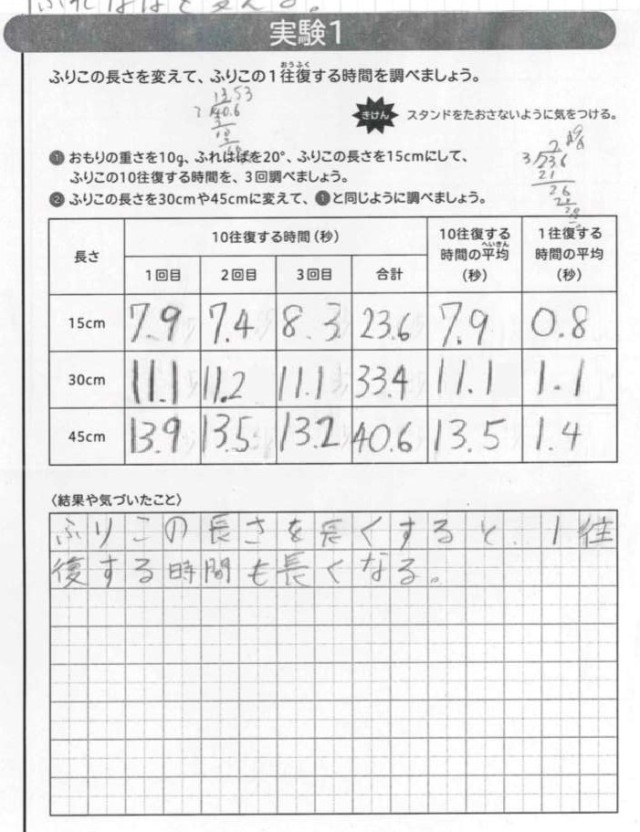 実験1
ふりこの長さを変えて、ふりこの1往復する時間を調べましょう。
おうふく
きけん スタンドをたおさないように気をつける。
❶ おもりの重さを10g、ふれはばを20°、ふりこの長さを15cmにして、
ふりこの10往復する時間を、3回調べましょう。
❷ ふりこの長さを30cmや45cmに変えて、❶と同じように調べましょう。
長さ 10往復する時間(秒) 10往復する時間の平均(秒) 1往復する時間の平均(秒)
へいきん
1回目 2回目 3回目 合計
15cm 7.9 7.4 8.3 23.6 7.9 0.8
30cm 11.1 11.2 11.1 33.4 11.1 1.1
45cm 13.9 13.5 13.2 40.6 13.5 1.4
〈結果や気づいたこと〉
ふりこの長さを長くすると、1往
復する時間も長くなる。